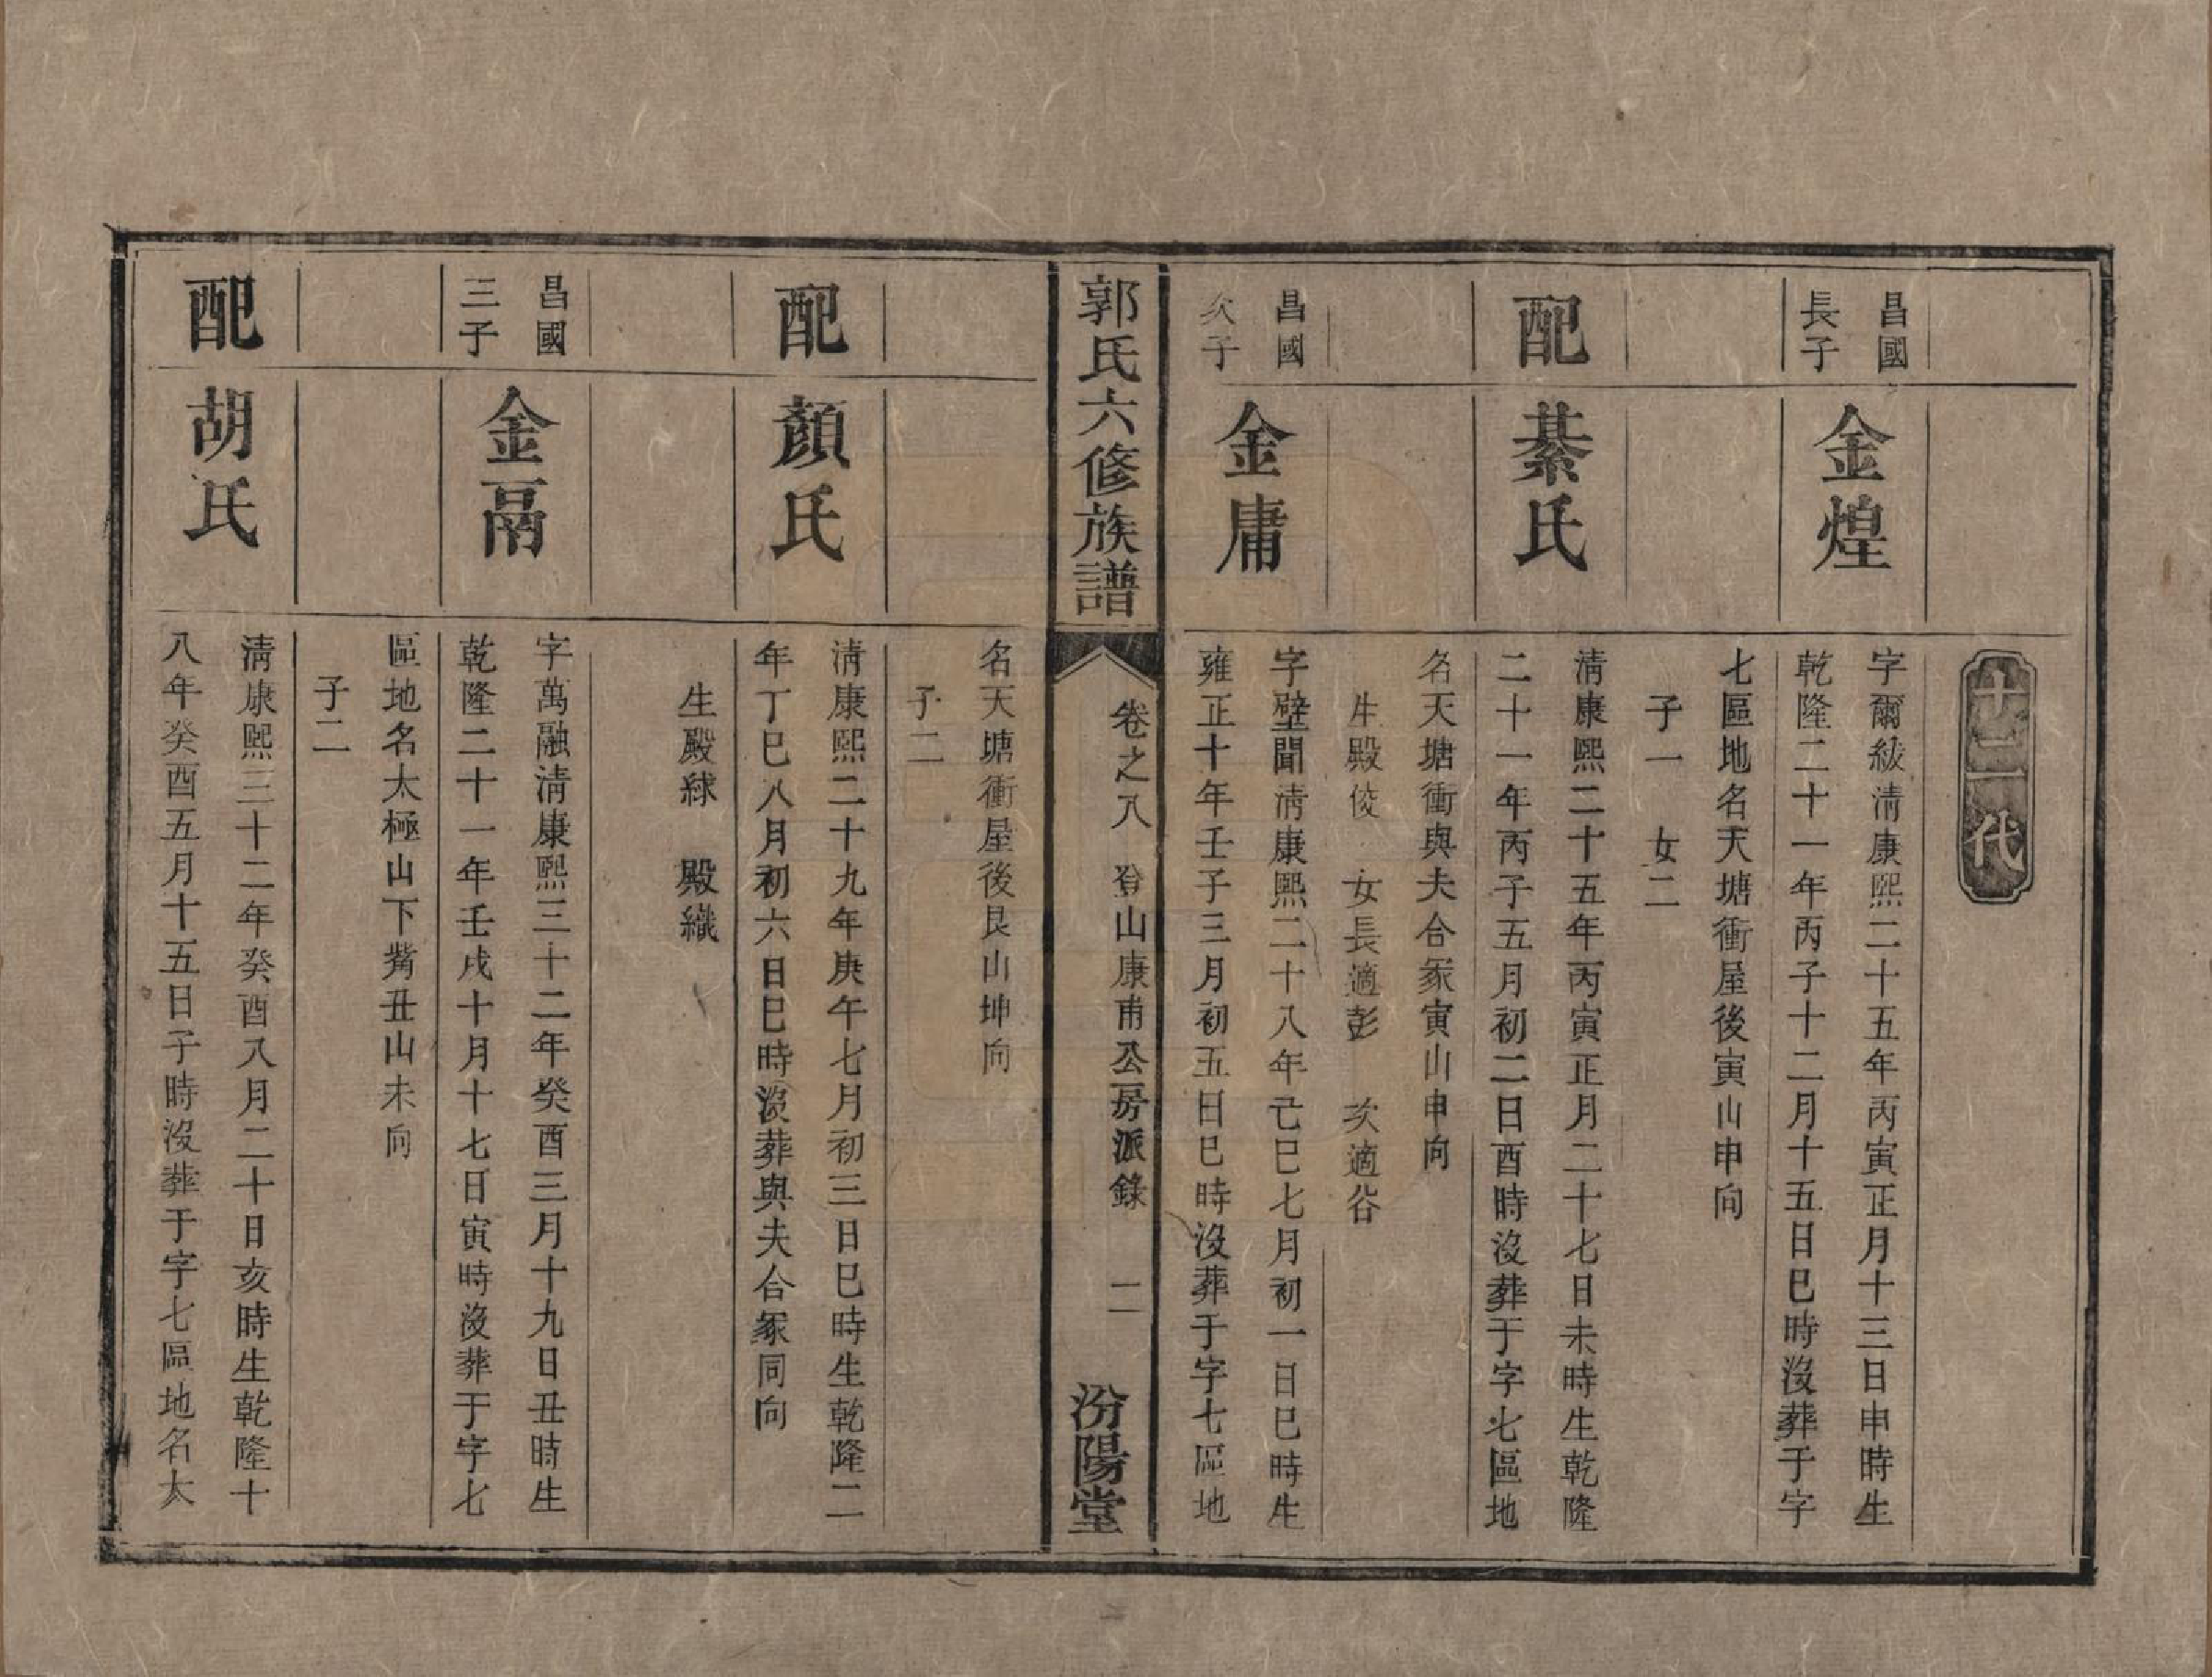 十二代
昌國
長子
金煌
字爾紱清康熙二十五年丙寅正月十三日申時生
乾隆二十一年丙子十二月十五日巳時沒葬于字
七區地名天塘衝屋後寅山申向
子一　女二
配
綦氏
清康熙二十五年丙寅正月二十七日未時生乾隆
二十一年丙子五月初二日酉時沒葬于字七區地
名天塘衝與夫合冢寅山申向
生殿俊　女長適彭　次適谷
昌國
次子
金庸
字壁聞清康熙二十八年己巳七月初一日巳時生
雍正十年壬子三月初五日巳時沒葬于字七區地
郭氏六修族譜
卷之八　登山康甫公房派錄　二
汾陽堂
名天塘衝屋後艮山坤向
子二
配
顏氏
清康熙二十九年庚午七月初三日巳時生乾隆二
年丁巳八月初六日巳時沒葬與夫合冢同向
生殿絿　殿織
昌國
三子
金鬲
字萬融清康熙三十二年癸酉三月十九日丑時生
乾隆二十一年壬戌十月十七日寅時沒葬于字七
區地名太極山下觜丑山未向
子二
配
胡氏
清康熙三十二年癸酉八月二十日亥時生乾隆十
八年癸酉五月十五日子時沒葬于字七區地名太